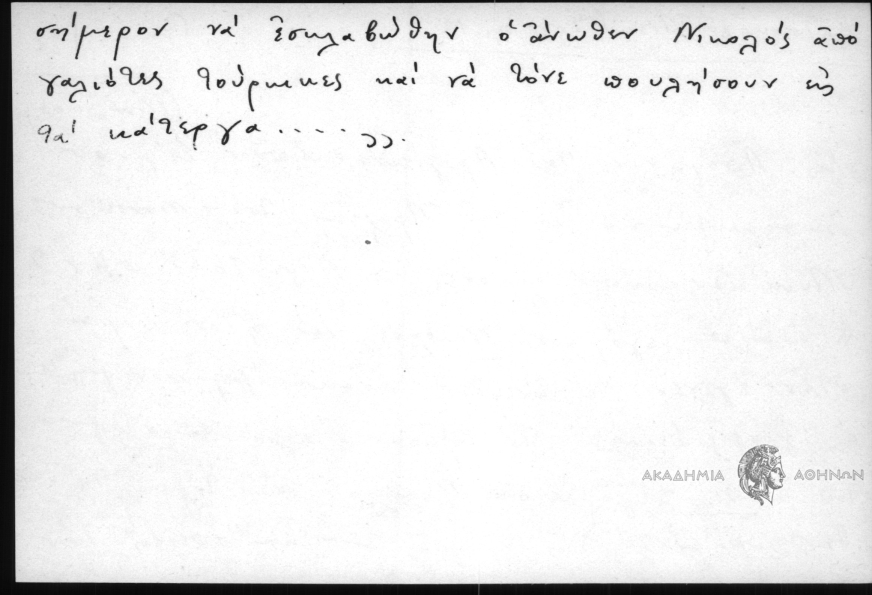 σήμερον νά ἐσκλαβώθην ὁ ἄνωθεν Νικολός ἀπό
γαλιότες τούρκικες καί νά τόνε πουλήσουν εἰς
τά κάτεργα .... ».
ΑΚΑΔΗΜΙΑ ΑΘΗΝΩΝ